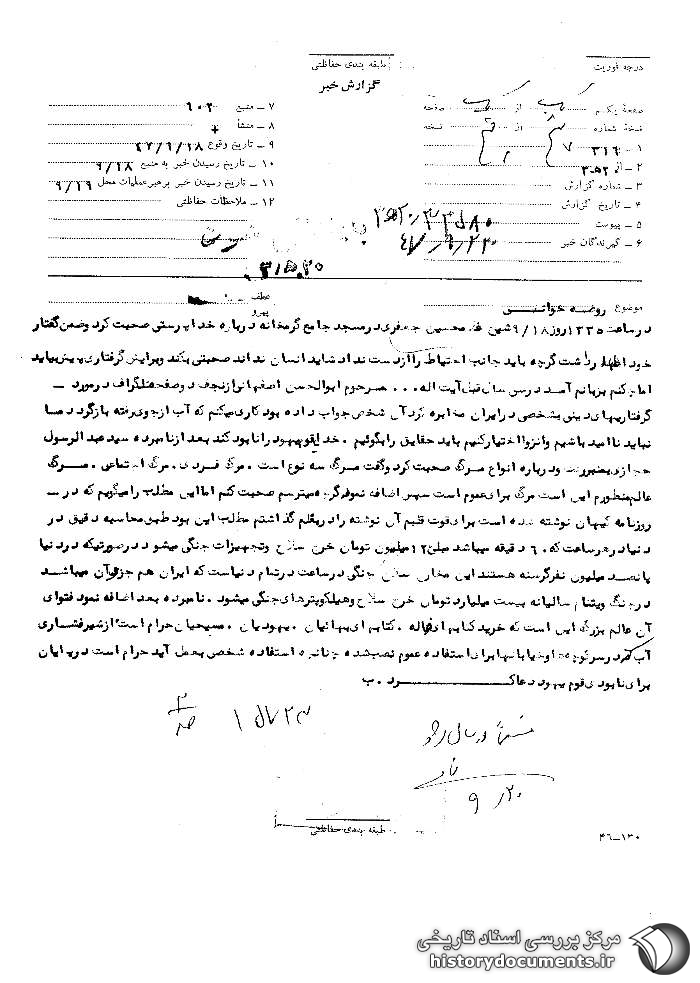 درجه فوریت
طبقه بندی حفاظتی
گزارش خبر
صفحهٔ یکم از صفحه
نسخهٔ شماره از نسخه
۱ ـ ۳۱۶
۲ ـ از ۳۵۲
۳ ـ شماره گزارش
۴ ـ تاریخ گزارش
۵ ـ پیوست
۶ ـ گیرندگان خبر
۷ ـ منبع ۶۰۲
۸ ـ منشأ
۹ ـ تاریخ وقوع ۴۷/۹/۱۸
۱۰ ـ تاریخ رسیدن خبر به منبع ۹/۱۸
۱۱ ـ تاریخ رسیدن خبر برهبرعملیات محل ۹/۱۹
۱۲ ـ ملاحظات حفاظتی
۳۱۵۰۲۰
موضوع روضه خوانی
عطف
پیرو
در ساعت ۱۲۳۵ روز ۹/۱۸ شیخ غلامحسین جعفری در مسجد جامع گرمخانه درباره خداپرستی صحبت کرد و ضمن گفتار
خود اظهار داشت گرچه باید جانب احتیاط را از دست نداد شاید انسان نداند صحبتی بکند و برایش گرفتاری پیش بیاید
اما چکنم بزبانم آمد در سی سال قبل آیت اله ... مرحوم ابوالحسن اصفهانی از نجف دو صفحه تلگراف در مورد ـ
گرفتاریهای دینی بشخصی در ایران مخابره کرد آن شخص جواب داده بود کاری میکنم که آب از جوی رفته بازگردد ما
نباید ناامید باشیم و انزوا اختیار کنیم باید حقایق را بگوئیم . خدا یا قوم یهود را نابود کند بعد از نامبرده سید عبدالرسول
حجازی بمنبر رفت و درباره انواع مرگ صحبت کرد و گفت مرگ سه نوع است . مرگ فردی . مرگ اجتماعی . مرگ
عالم منظورم این است مرگ برای عموم است سپس اضافه نمود گرچه میترسم صحبت کنم اما این مطلب را میگویم که در ـ
روزنامه کیهان نوشته شده است برای قوت قلبم آن نوشته را در بغلم گذاشتم مطلب این بود طبق محاسبه دقیق در
دنیا در هر ساعت که ۶۰ دقیقه میباشد مبلغ ۱۲ میلیون تومان خرج سلاح و تجهیزات جنگی میشود در صورتیکه در دنیا
پانصد میلیون نفر گرسنه هستند این مخارج سلاح جنگی در ساعت در تمام دنیاست که ایران هم جزو آن میباشد
در جنگ ویتنام سالیانه بیست میلیارد تومان خرج سلاح و هلیکوپترهای جنگی میشود . نامبرده بعد اضافه نمود فتوای
آن عالم بزرگ این است که خرید کتابهای ضاله . کتابهای بهائیان . یهودیان . مسیحیان حرام است از شیر فشاری
آب که در سر کوچه ها و خیابانها برای استفاده عموم نصب شده چنانچه استفاده شخصی بعمل آید حرام است در پایان
برای نابودی قوم یهود دعا کرد . ب
۹/۲۰
طبقه بندی حفاظتی
۴۶ـ۱۳۰
مرکز بررسی اسناد تاریخی
historydocuments.ir